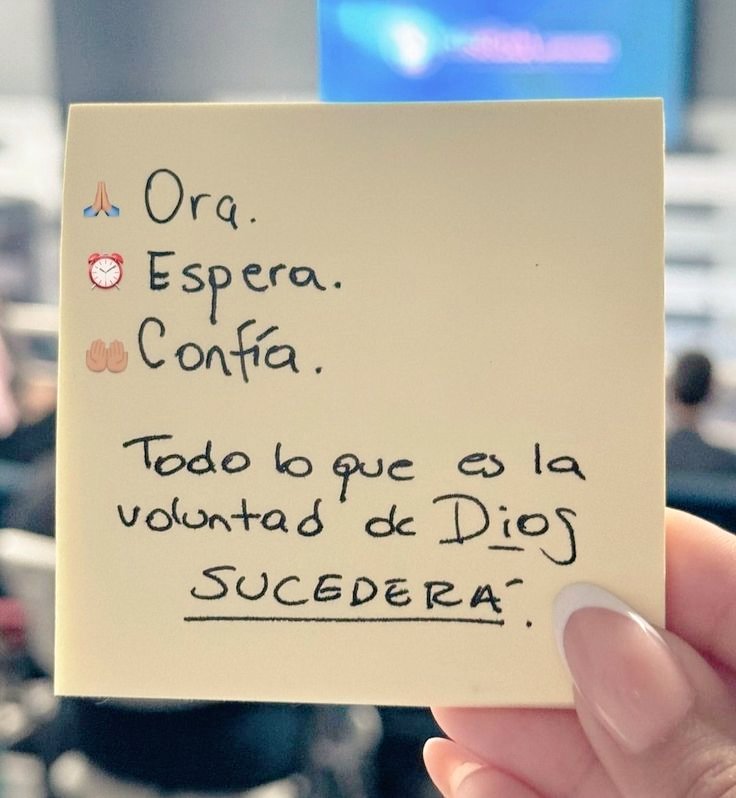 🙏🏼 Ora.
⏰ Espera.
🤲🏼 Confía.
Todo lo que es la
voluntad de Dios
SUCEDERÁ.